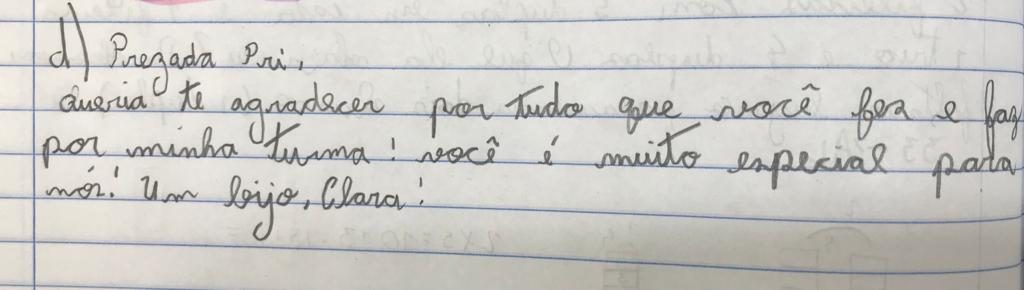 d) Prezada Pri,
queria te agradecer por tudo que você fez e faz
por minha turma! você é muito especial para
nós! Um beijo, Clara!